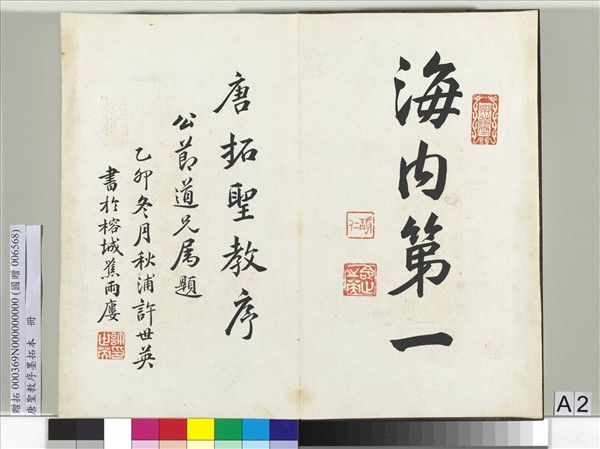 海内第一
唐拓聖教序
公莭道兄属題
乙卯冬月秋浦許世英
書於榕城蕉雨廔
贈拓 000369N000000000 (國贈 006568)
唐聖教序墨拓本 冊
A 2